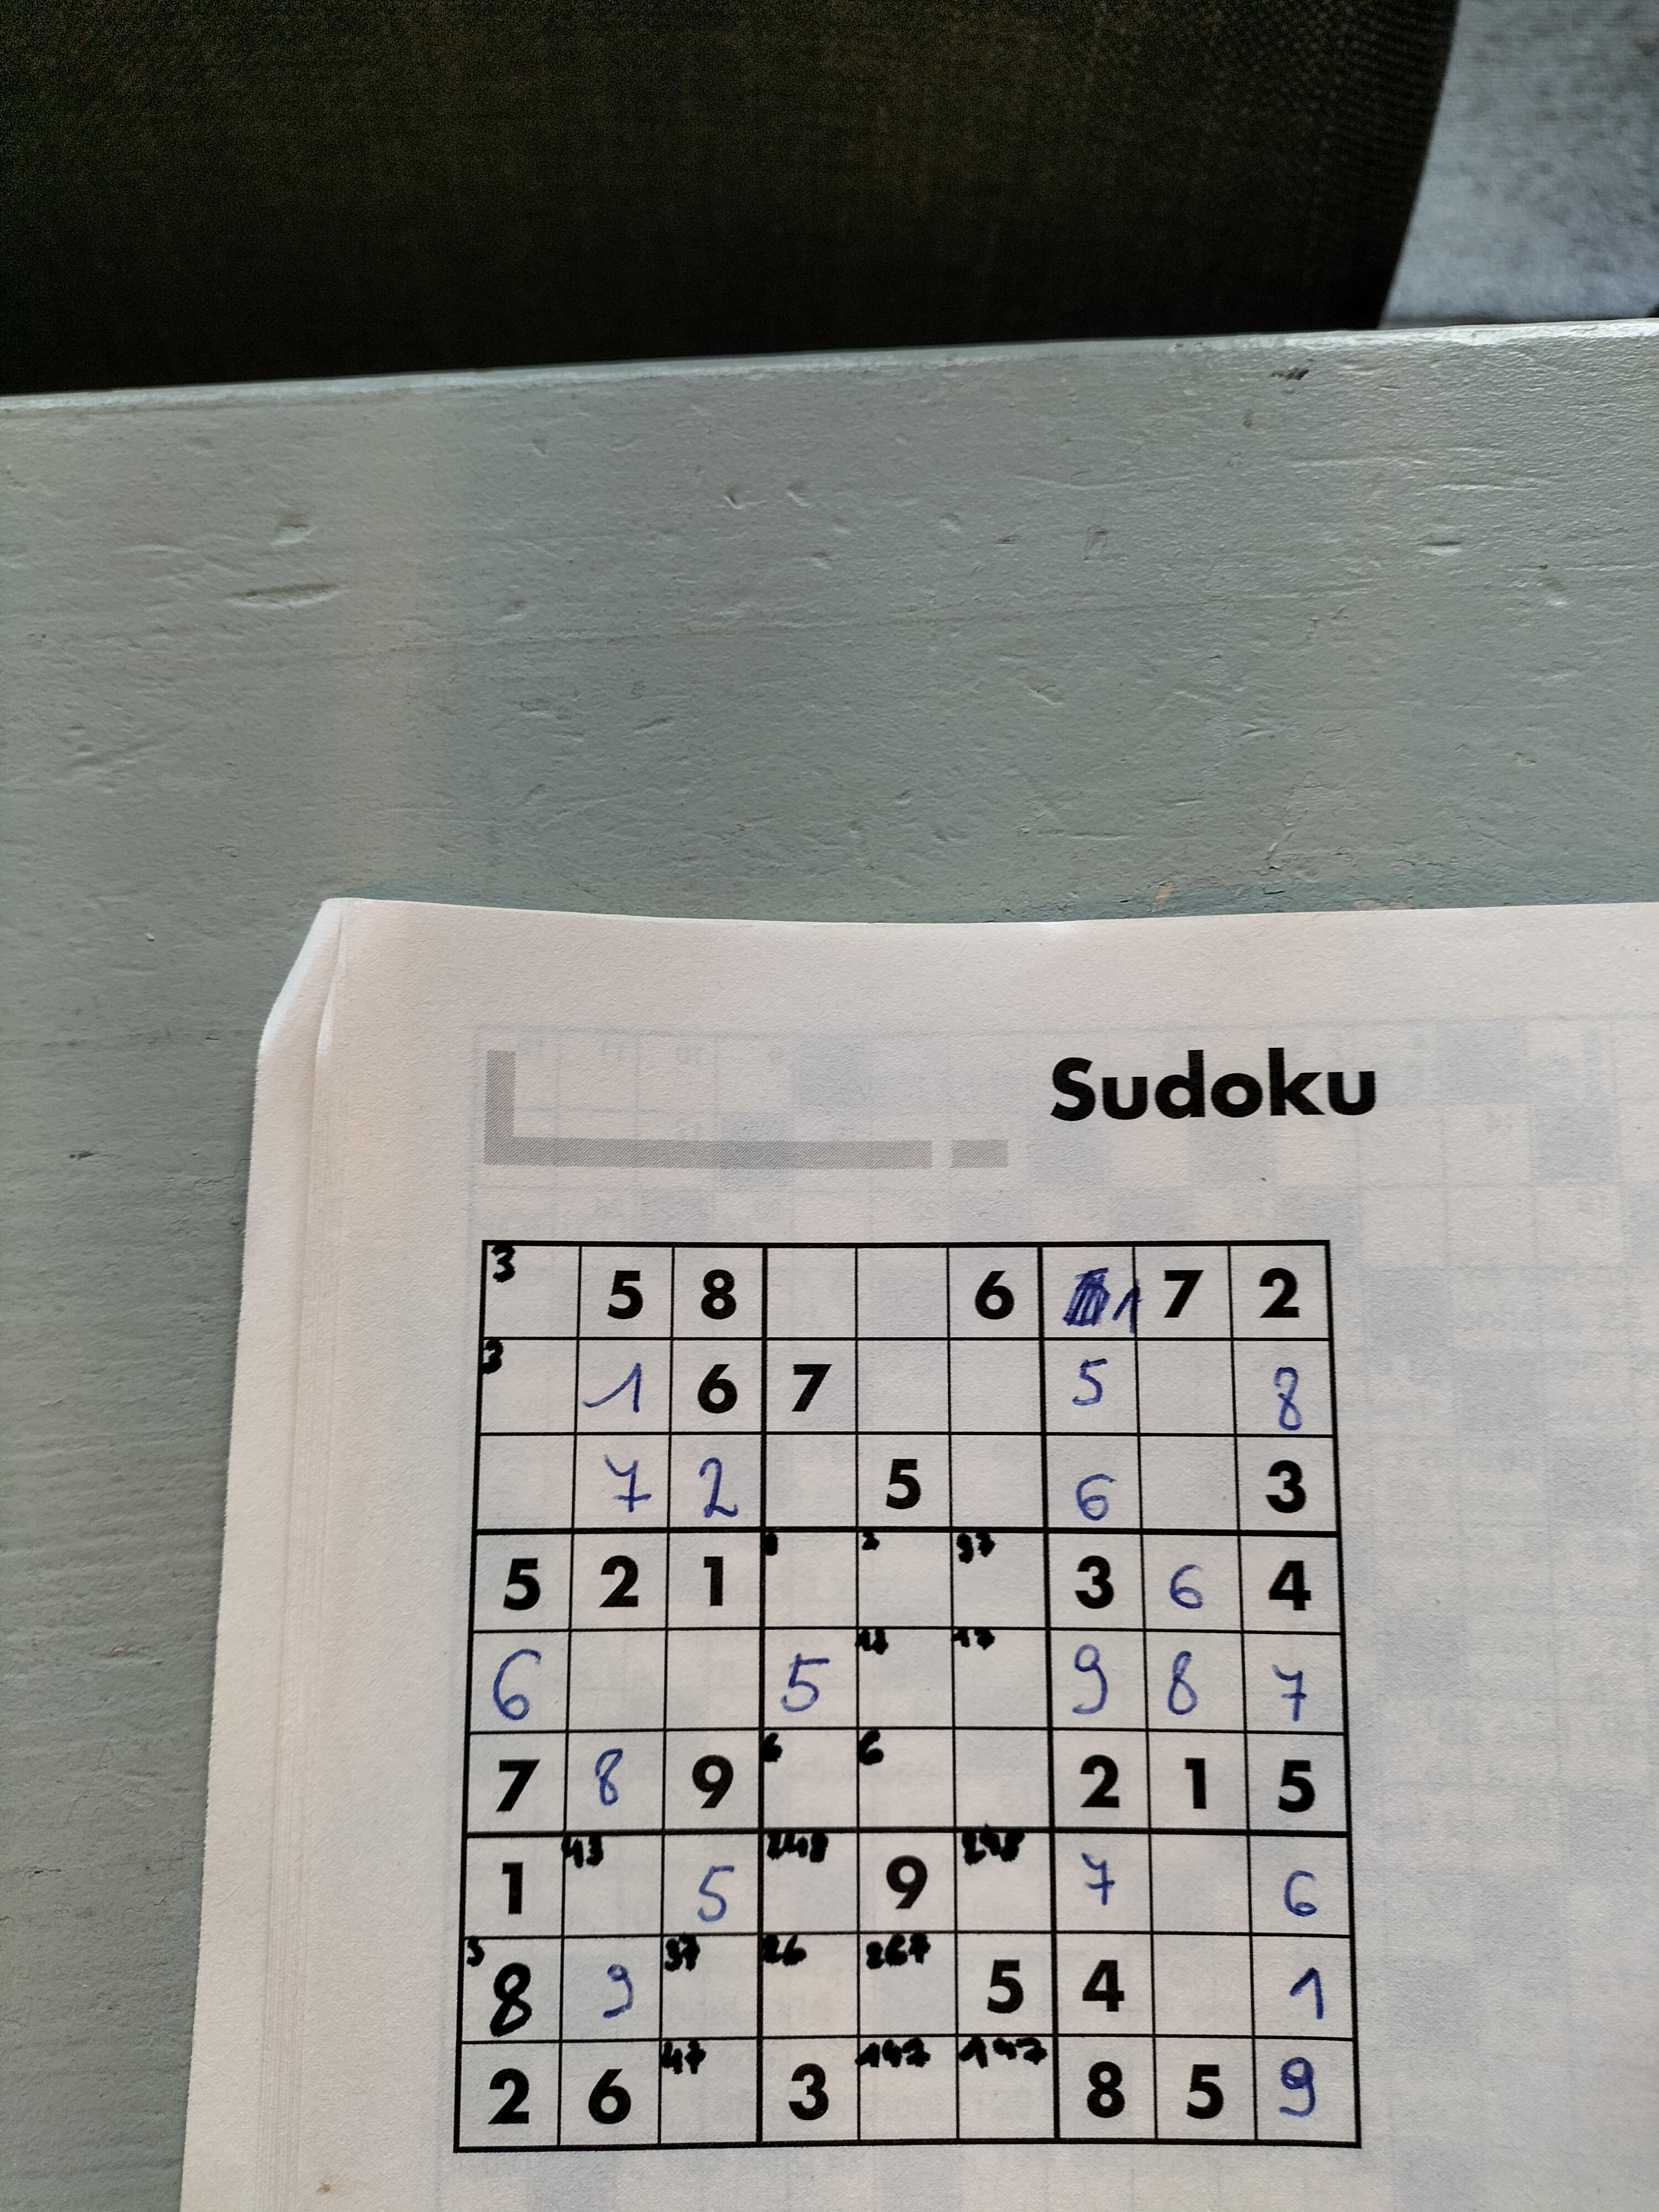 Sudoku
3 5 8 6 1 7 2
3 1 6 7 5 8
7 2 5 6 3
5 2 1 2 97 3 6 4
6 5 17 17 9 8 7
7 8 9 6 6 2 1 5
1 43 5 248 9 248 7 6
3 8 9 37 26 267 5 4 1
2 6 47 3 147 147 8 5 9